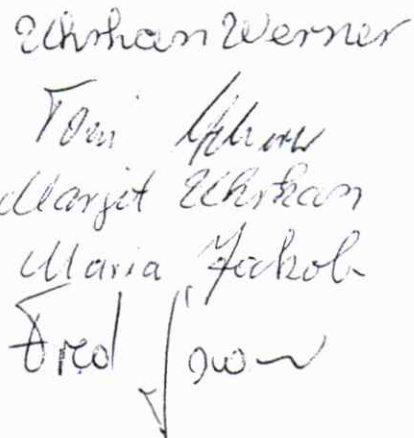 Uhrhan Werner
Toni
Margit Uhrhan
Maria Jakob
Fred